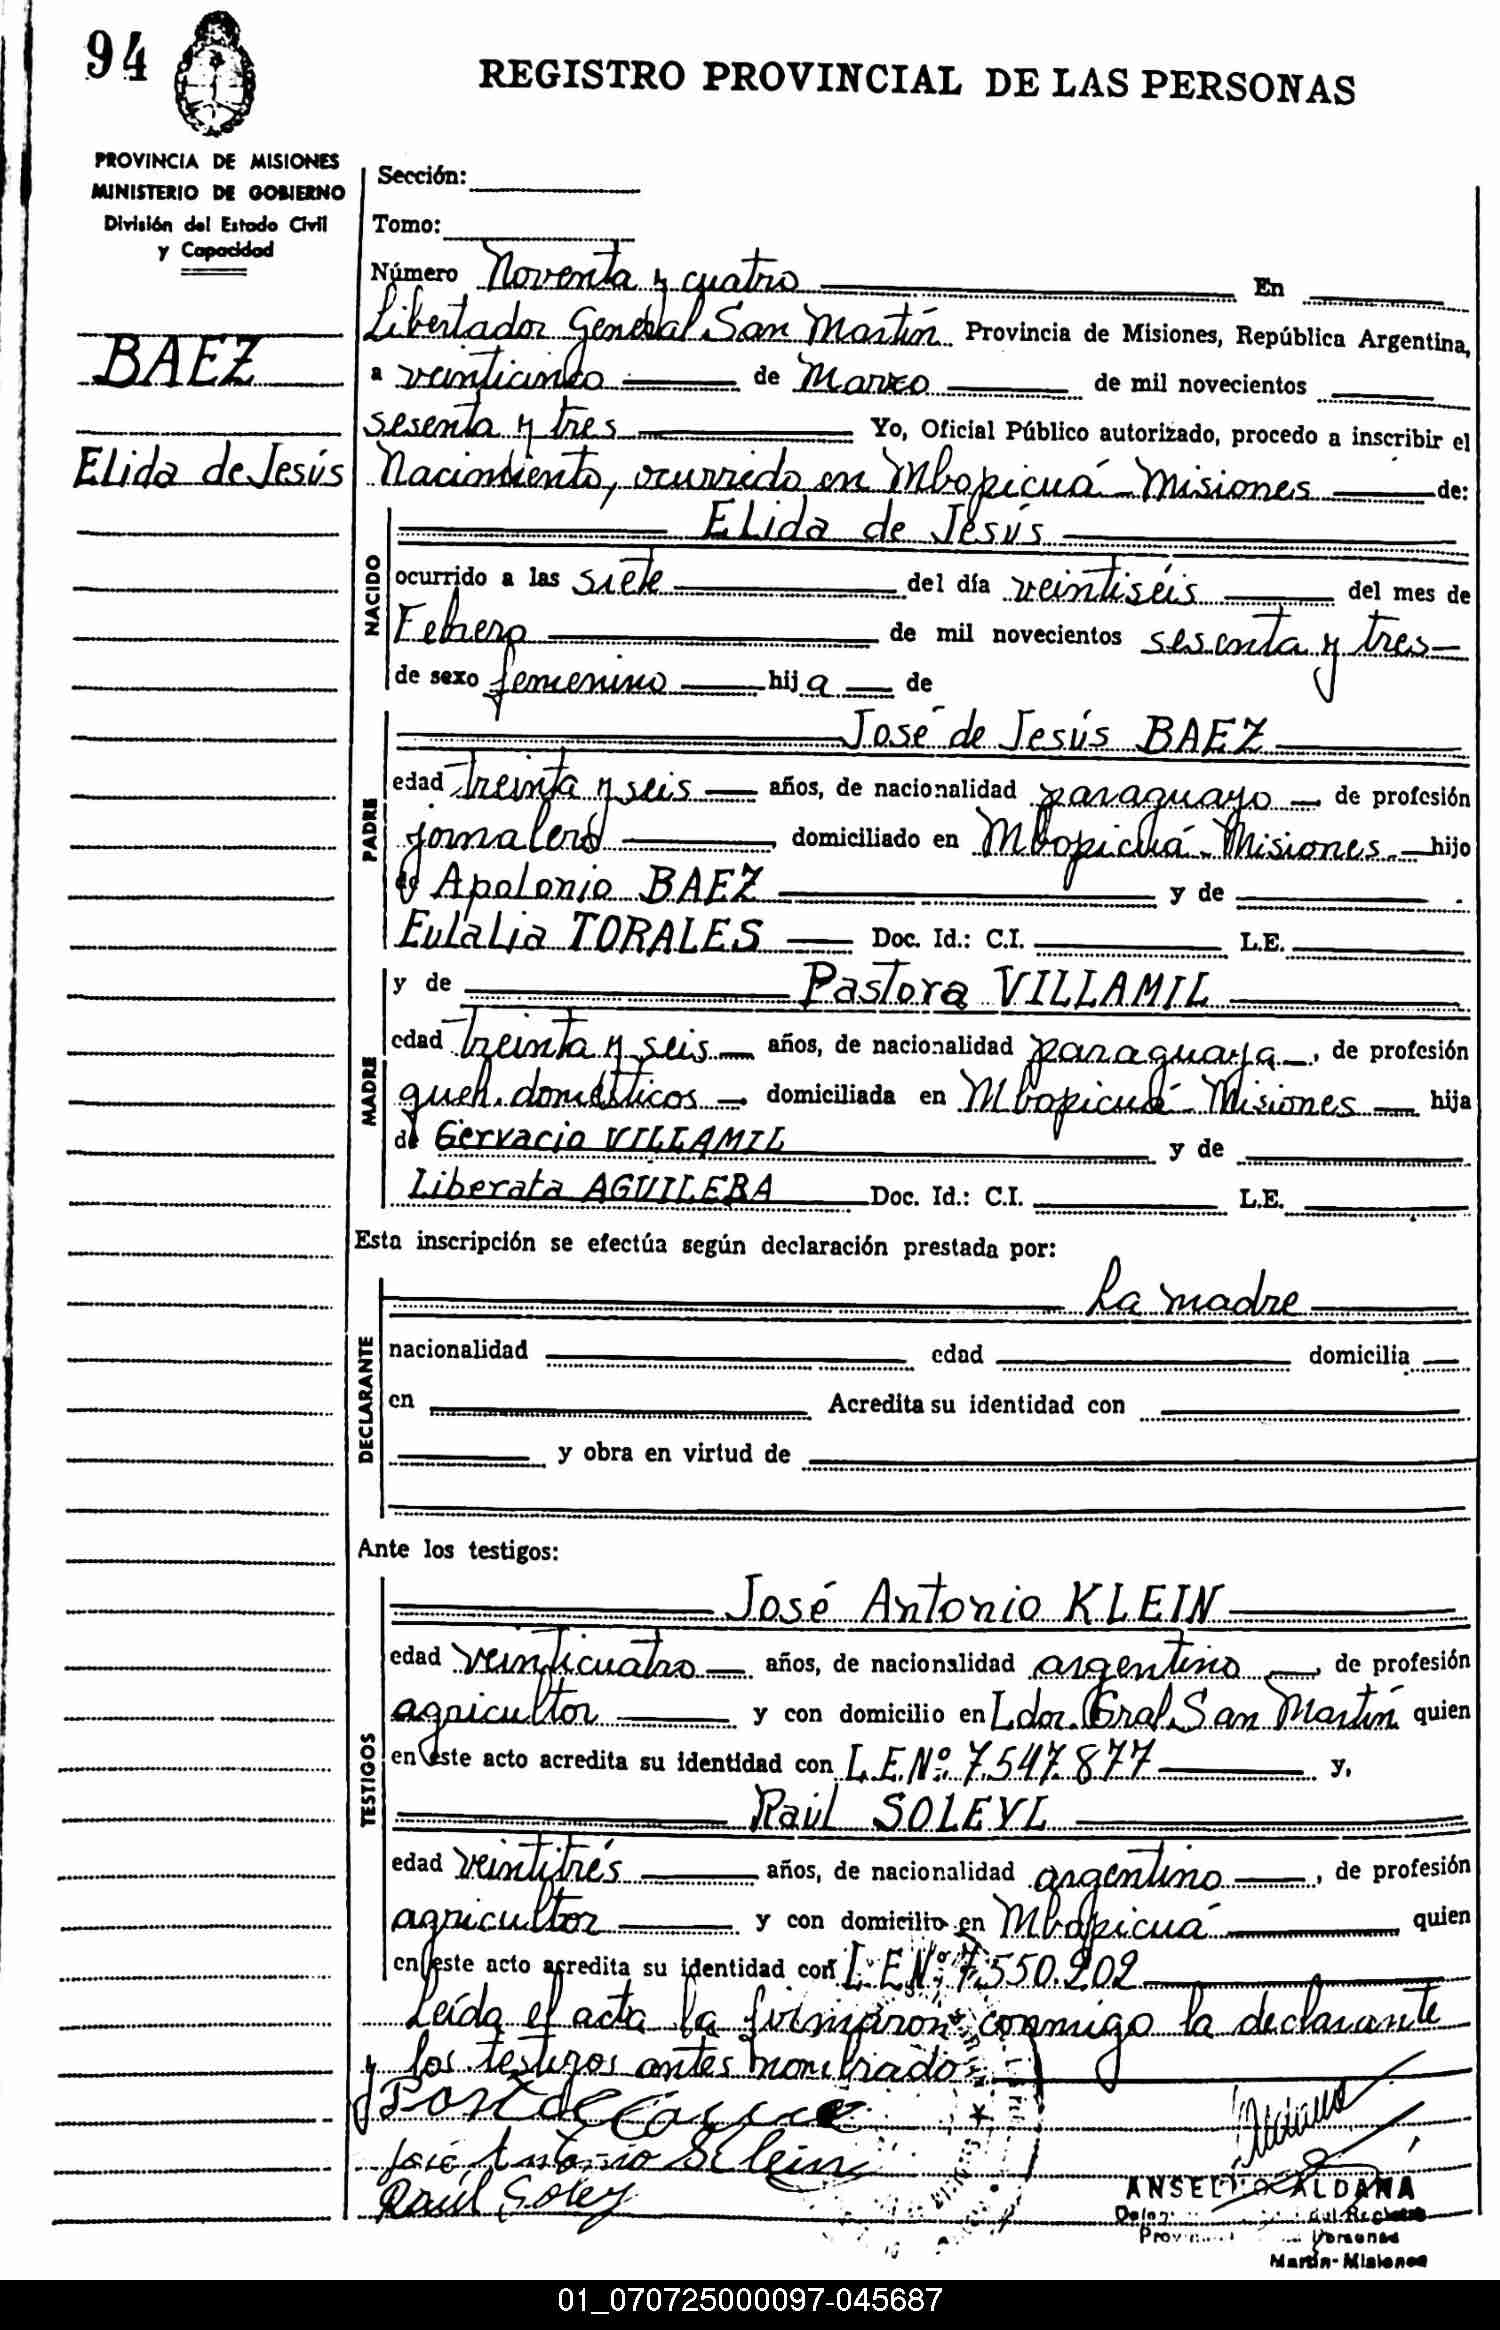 94
REGISTRO PROVINCIAL DE LAS PERSONAS
PROVINCIA DE MISIONES
MINISTERIO DE GOBIERNO
División del Estado Civil
y Capacidad
BAEZ
Elida de Jesús
Sección:
Tomo:
Número Noventa y cuatro En
Libertador General San Martín Provincia de Misiones, República Argentina,
a veinticinco de Marzo de mil novecientos
sesenta y tres Yo, Oficial Público autorizado, procedo a inscribir el
Nacimiento, ocurrido en Mbopicuá - Misiones de:
NACIDO
Elida de Jesús
ocurrido a las siete del día veintiséis del mes de
Febrero de mil novecientos sesenta y tres
de sexo femenino hija de
PADRE
José de Jesús BAEZ
edad treinta y seis años, de nacionalidad paraguayo, de profesión
jornalero, domiciliado en Mbopicuá - Misiones hijo
de Apolonio BAEZ y de
Eulalia TORALES Doc. Id.: C.I. L.E.
MADRE
y de Pastora VILLAMIL
edad treinta y seis años, de nacionalidad paraguaya, de profesión
queh. domésticos, domiciliada en Mbopicuá - Misiones hija
de Gervacio VILLAMIL y de
Liberata AGUILERA Doc. Id.: C.I. L.E.
Esta inscripción se efectúa según declaración prestada por:
DECLARANTE
La madre
nacionalidad edad domicilia
en Acredita su identidad con
y obra en virtud de
Ante los testigos:
TESTIGOS
José Antonio KLEIN
edad veinticuatro años, de nacionalidad argentino, de profesión
agricultor y con domicilio en Ldor. Gral. San Martín quien
en este acto acredita su identidad con L.E.Nº: 7.547.877 y,
Raúl SOLEYL
edad veintitrés años, de nacionalidad argentino, de profesión
agricultor y con domicilio en Mbopicuá quien
en este acto acredita su identidad con L.E.Nº: 7.550.202
Leída el acta la firmaron conmigo la declarante
y los testigos antes nombrados
José Antonio Klein
Raúl Soley
ALDANA
del Registro
Personas
Martín - Misiones
01_070725000097-045687